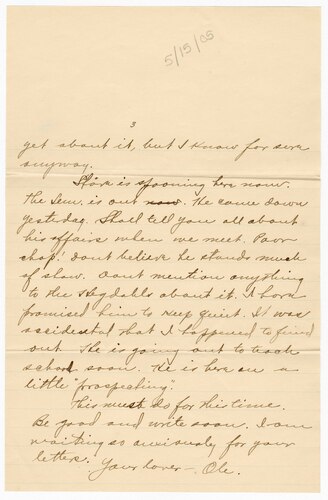 5/15/05
3
get about it, but I know for sure
anyway.
Stark is spooning here now.
The Sem. is out now. He came down
yesterday. Shall tell you all about
his affairs when we meet. Poor
chap! dont believe he stands much
of show. Dont mention anything
to the Hegdahls about it. I have
promised him to keep quiet. I was
accidental that I happened to find
out. He is going out to teach
school soon. He is here on a
little "prospecting".
This must do for this time.
Be good and write soon. I am
waiting so anxiously for your
letter. Your lover – Ole.